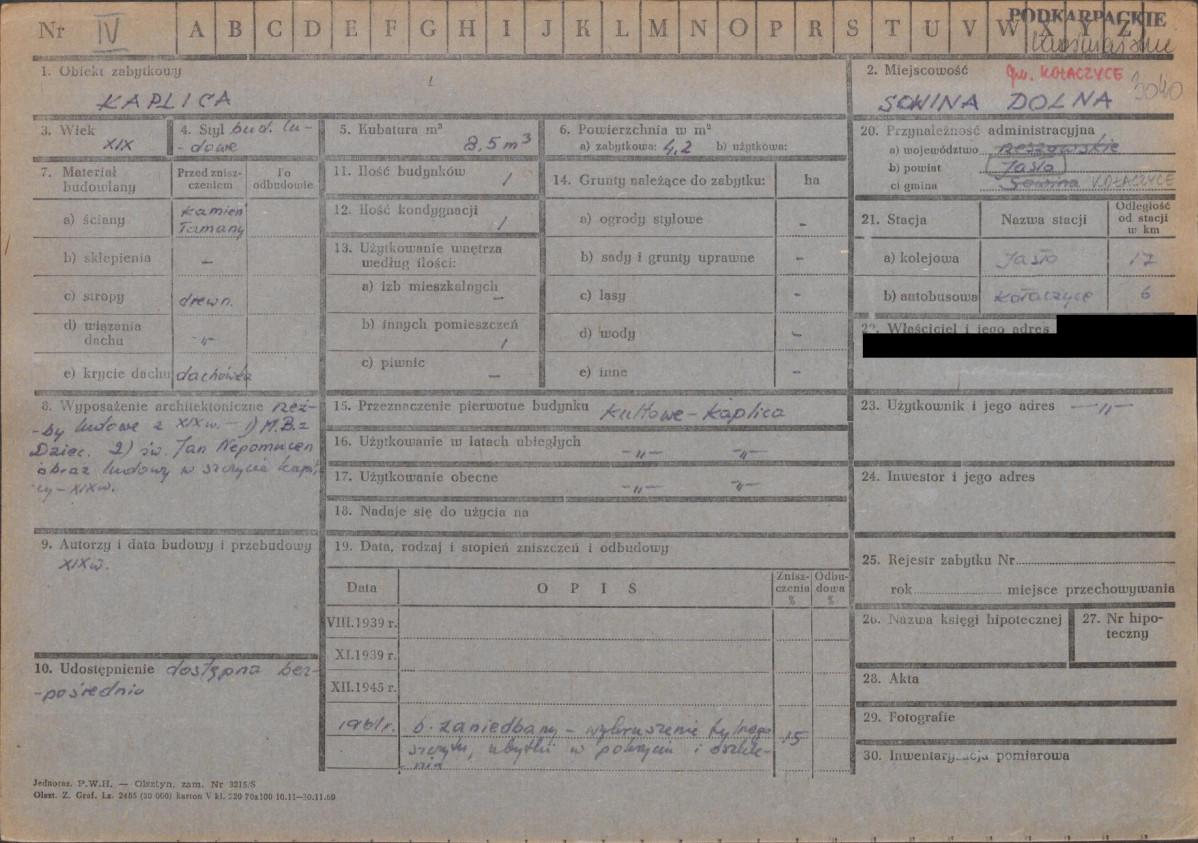 Nr IV A B C D E F G H I J K L M N O P R S T U V W X Y Z
PODKARPACKIE
1. Obiekt zabytkowy
KAPLICA
2. Miejscowość gm. KOŁACZYCE
SOWINA DOLNA 3040
3. Wiek
XIX
4. Styl bud. lu-
-dowe
5. Kubatura m³
8,5 m³
6. Powierzchnia w m²
a) zabytkowa: 4,2 b) użytkowa:
20. Przynależność administracyjna
a) województwo rzeszowskie
b) powiat Jasło
c) gmina Sowina KOŁACZYCE
7. Materiał budowlany
Przed zniszczeniem
Po odbudowie
a) ściany kamień
łamany
b) sklepienia —
c) stropy drewn.
d) wiązania
dachu -„-
e) krycie dachu dachówka
11. Ilość budynków 1
12. Ilość kondygnacji 1
13. Użytkowanie wnętrza
według ilości:
a) izb mieszkalnych —
b) innych pomieszczeń 1
c) piwnic —
14. Grunty należące do zabytku: ha
a) ogrody stylowe -
b) sady i grunty uprawne -
c) lasy -
d) wody -
e) inne -
21. Stacja Nazwa stacji Odległość
od stacji
w km
a) kolejowa Jasło 17
b) autobusowa Kołaczyce 6
22. Właściciel i jego adres
8. Wyposażenie architektoniczne rzeź-
-by ludowe z XIX w. – 1) M.B. z
Dziec. 2) św. Jan Nepomucen
obraz ludowy w szczycie kapli-
cy – XIX w.
15. Przeznaczenie pierwotne budynku kultowe - kaplica
16. Użytkowanie w latach ubiegłych -„- -„-
17. Użytkowanie obecne -„- -„-
18. Nadaje się do użycia na
23. Użytkownik i jego adres —„—
24. Inwestor i jego adres
9. Autorzy i data budowy i przebudowy
XIX w.
19. Data, rodzaj i stopień zniszczeń i odbudowy
Data O P I S Znisz-
czenia
% Odbu-
dowa
%
VIII.1939 r.
XI.1939 r.
XII.1945 r.
1961 r. b. zaniedbany – wybruszenie tylnego
szczytu, ubytki w pokryciu i oszkle-
niu 15
25. Rejestr zabytku Nr
rok miejsce przechowywania
26. Nazwa księgi hipotecznej
27. Nr hipo-
teczny
10. Udostępnienie dostępna bez-
-pośrednio
28. Akta
29. Fotografie
30. Inwentaryzacja pomiarowa
Jednoraz. P.W.H. — Olsztyn, zam. Nr 3215/S
Olszt. Z. Graf. Lz. 2485 (30 000) karton V kl. 220 70x100 10.11—30.11.60